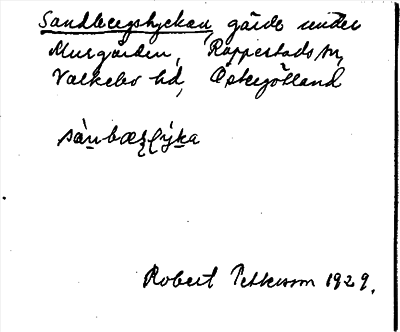 Sandbergslyckan, gärde under
Murgården, Rappestads sn,
Valkebo hd, Östergötland
Robert Petterson 1929.